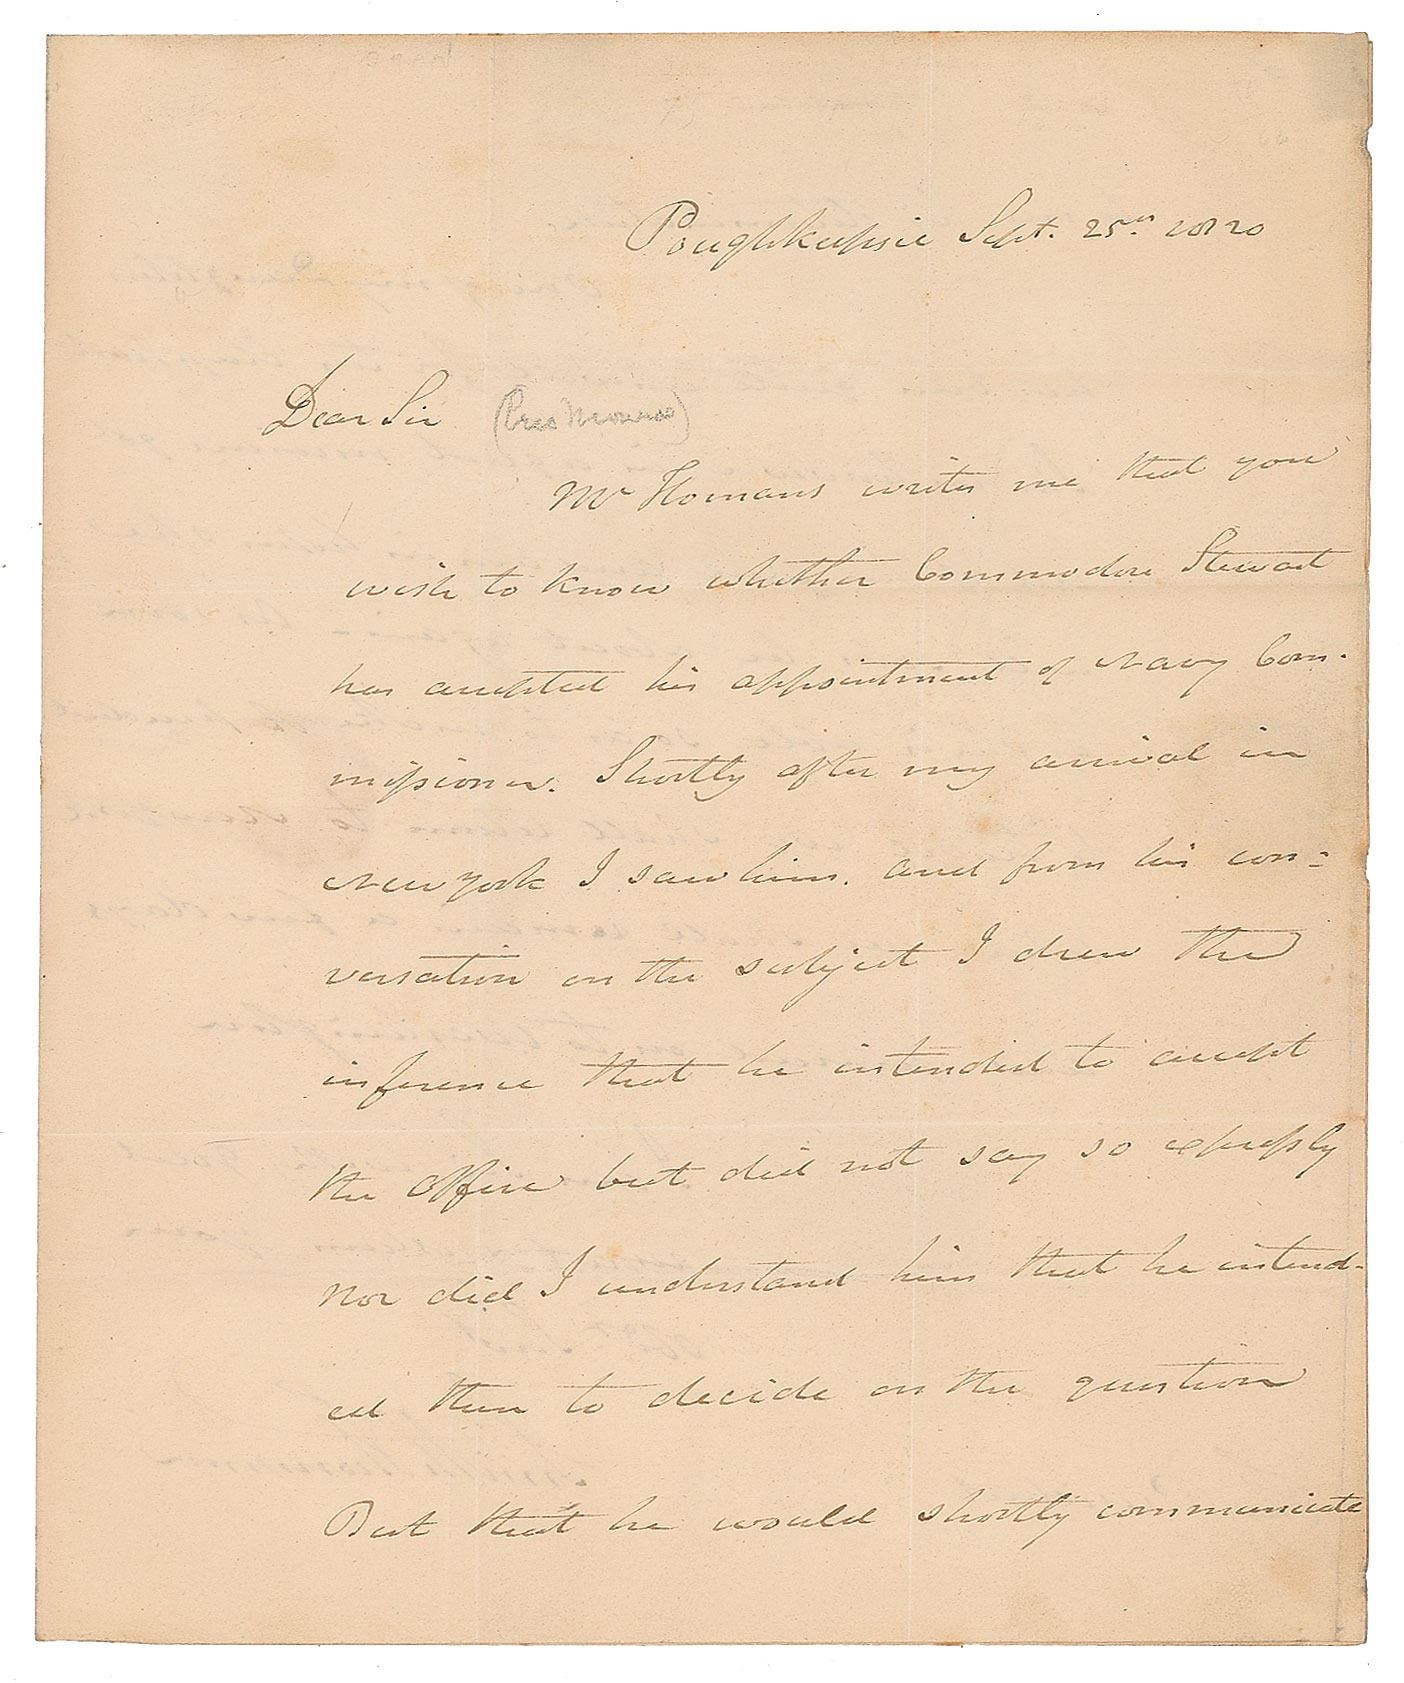 Poughkeepsie Sept. 25th 1820
Dear Sir (Pres Monroe)
Mr Homans writes me that you
wish to know whether Commodore Stewart
has accepted his appointment of Navy Com-
missioner. Shortly after my arrival in
New York I saw him. and from his con=
versation on the subject I drew the
inference that he intended to accept
the office but did not say so expressly
Nor did I understand him that he intend-
ed then to decide on the question
But that he would shortly communicate